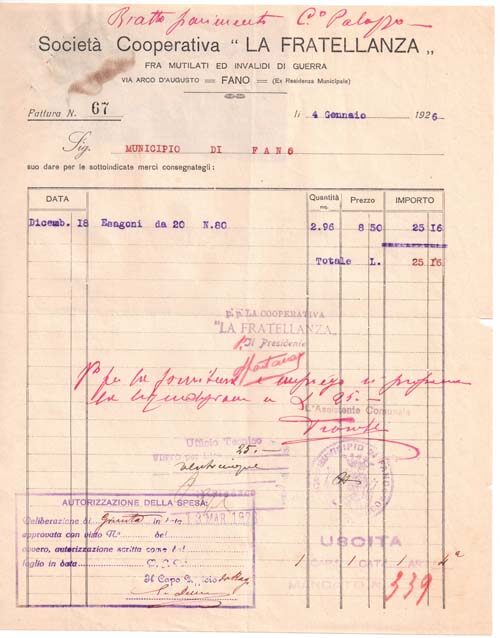 Società Cooperativa " LA FRATELLANZA "
FRA MUTILATI ED INVALIDI DI GUERRA
VIA ARCO D'AUGUSTO = FANO = (Ex Residenza Municipale)
Fattura N. 67
li 4 Gennaio 1926
Sig. MUNICIPIO DI FANO
suo dare per le sottoindicate merci consegnategli :
DATA Quantità no. Prezzo IMPORTO
Dicemb. 18 Esagoni da 20 N.80 2.96 8 50 25 16
Totale L. 25 16
p.p. LA COOPERATIVA
"LA FRATELLANZA"
Il Presidente
per la fornitura e impiego si propone
L'Assistente Comunale
Ufficio Tecnico
25.-
venticinque
MUNICIPIO DI FANO
AUTORIZZAZIONE DELLA SPESA:
Deliberazione di Giunta in data 13 MAR 1926
approvata con visto N° del
ovvero, autorizzazione scritta come dal
foglio in data
Il Capo Ufficio
USCITA
CAP. CAT. ART.
MANDATO N. 339